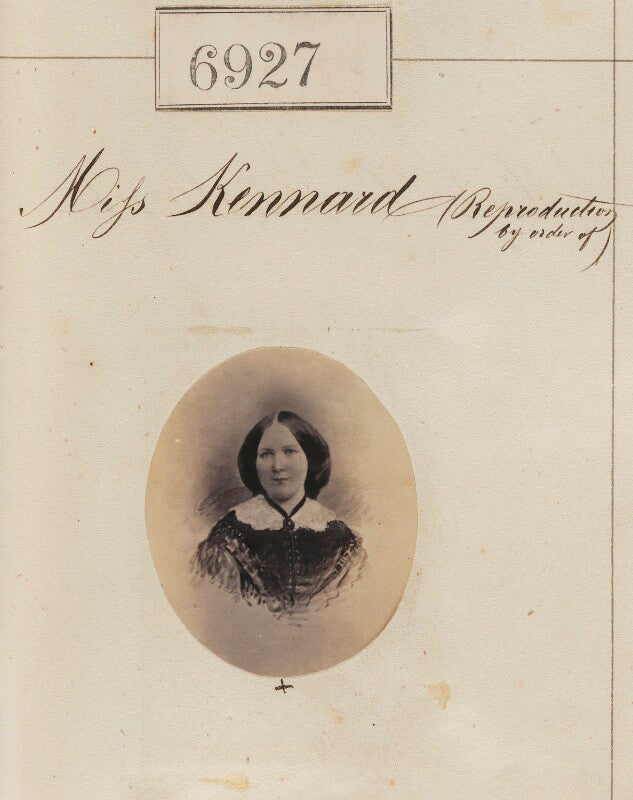 6927
Miss Kennard (Reproduction
by order of)